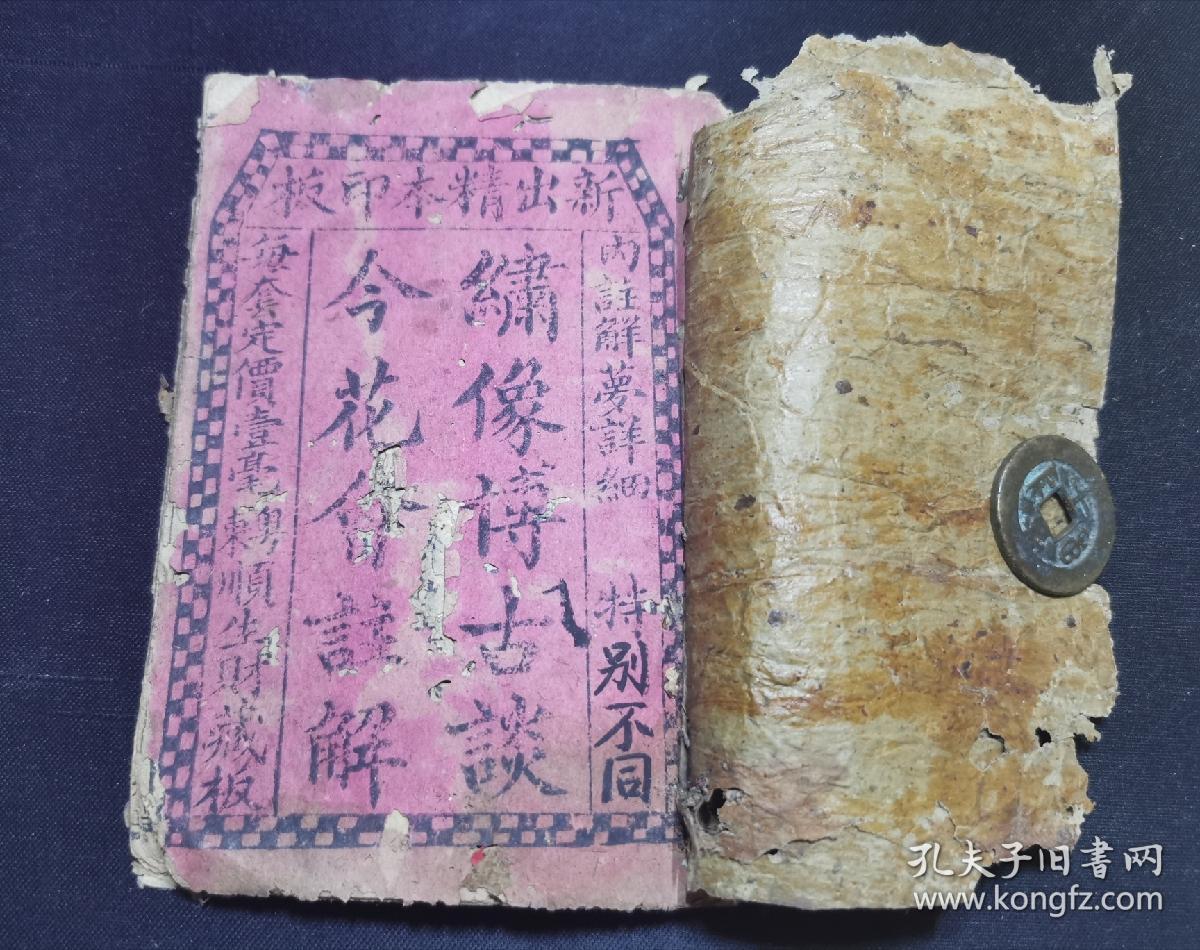 新出精本印板
內註解夢詳細 特別不同
繡像博古談
今花會註解
每套定價壹毫 順生財藏板
孔夫子旧书网
www.kongfz.com